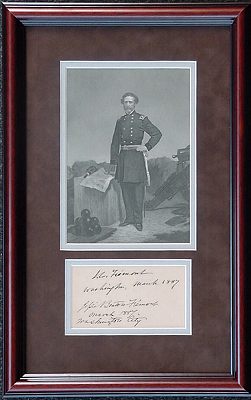 J. C. Frémont
Washington, March 1887
Jessie Benton Frémont
March 1887.
Washington City